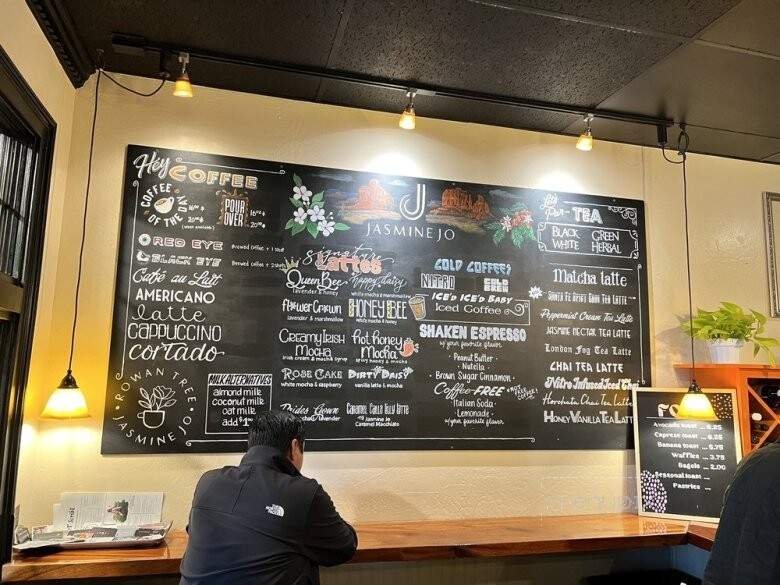 Hey COFFEE
COFFEE OF THE DAY
16oz
20oz
POUR OVER
16oz
20oz
RED EYE Brewed Coffee + 1 Shot
BLACK EYE Brewed Coffee + 2 Shots
Café au Lait
AMERICANO
latte
CAPPUCCINO
cortado
ROWAN TREE
JASMINE JO
MILK ALTERNATIVES
almond milk
coconut milk
oat milk
add $1
J
JASMINE JO
signature
Lattes
Queen Bee
lavender & honey
Flower Crown
lavender & marshmallow
Creamy Irish
Mocha
irish cream & mocha syrup
Rose Cake
white mocha & raspberry
Brides Gown
Hippy Daisy
white mocha & marshmallow
HONEY BEE
white mocha & honey
Hot Honey
Mocha
spicy honey & mocha
DIRTY DAISY
vanilla latte & mocha
Jasmine Jo
Caramel Macchiato
COLD COFFEES
NITRO
COLD BREW
ICE'D ICE'D BABY
Iced Coffee
SHAKEN ESPRESSO
w/ your favorite flavor
Peanut Butter
Nutella
Brown Sugar Cinnamon
Coffee-FREE
Italian Soda
Lemonade
w/ your favorite flavor
Let's Par-TEA
BLACK GREEN
WHITE HERBAL
Matcha latte
Peppermint Cream Tea Latte
JASMINE NECTAR TEA LATTE
London Fog Tea Latte
CHAI TEA LATTE
Nitro Infused Iced Chai
Horchata Chai Tea Latte
HONEY VANILLA TEA LATTE
FO
Avocado toast ... 6.25
Caprese toast ... 6.25
Banana toast ... 5.75
Waffles ... 3.75
Bagels ... 2.00
Seasonal toast ...
Pastries ...
THE NORTH FACE